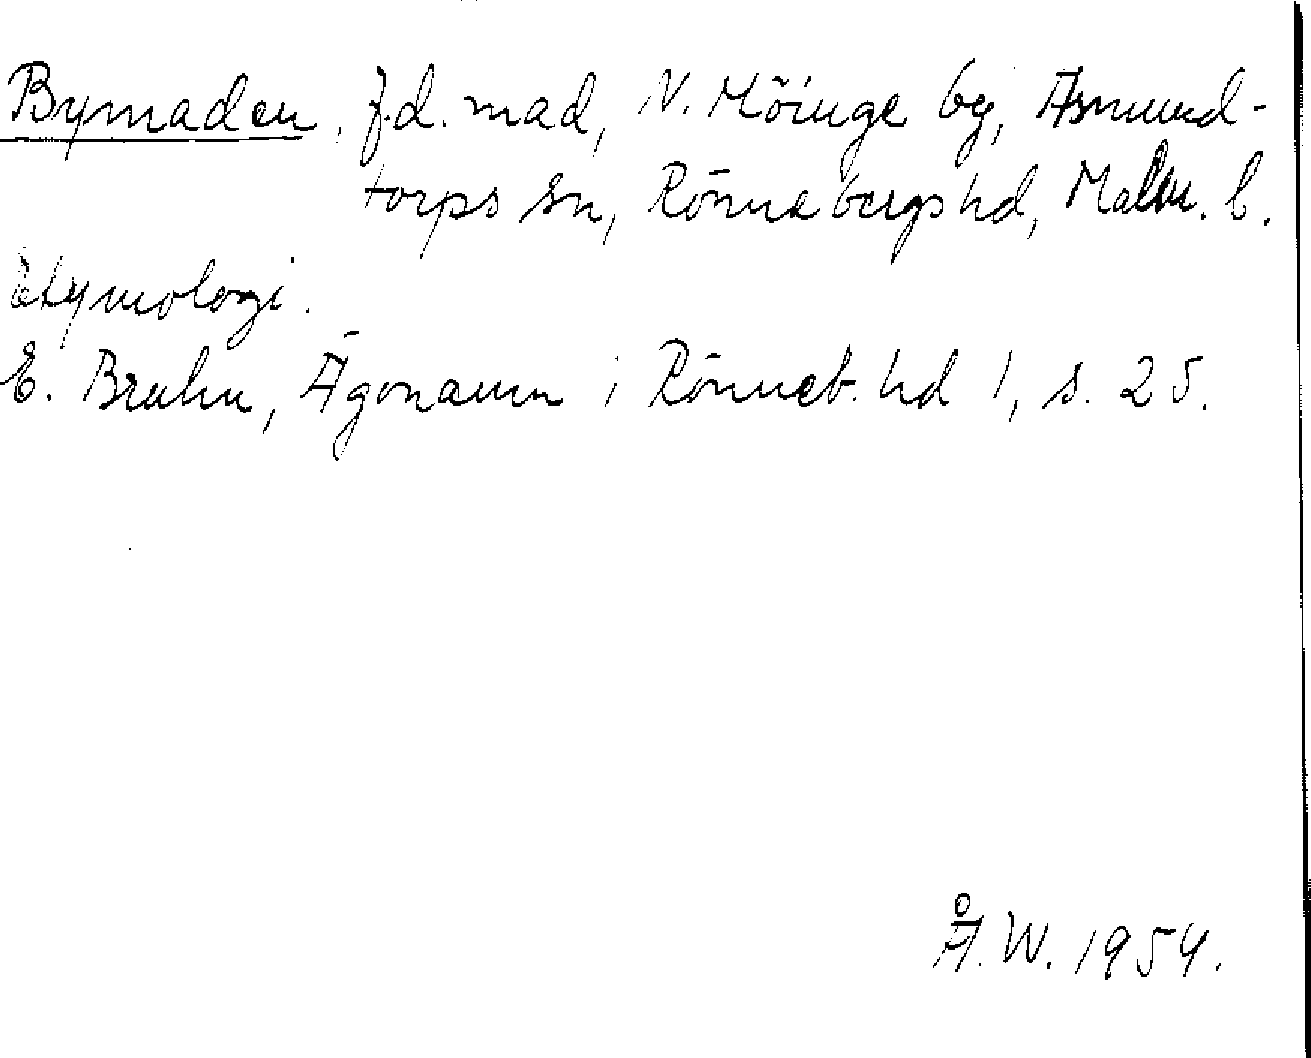 Bymaden, f.d. mad, N. Möinge by, Asmund-
torps sn, Rönnebergs hd, Malm. l.
Etymologi.
E. Bruhn, Ägonamn i Rönneb. hd 1, s. 25.
Å.W. 1954.